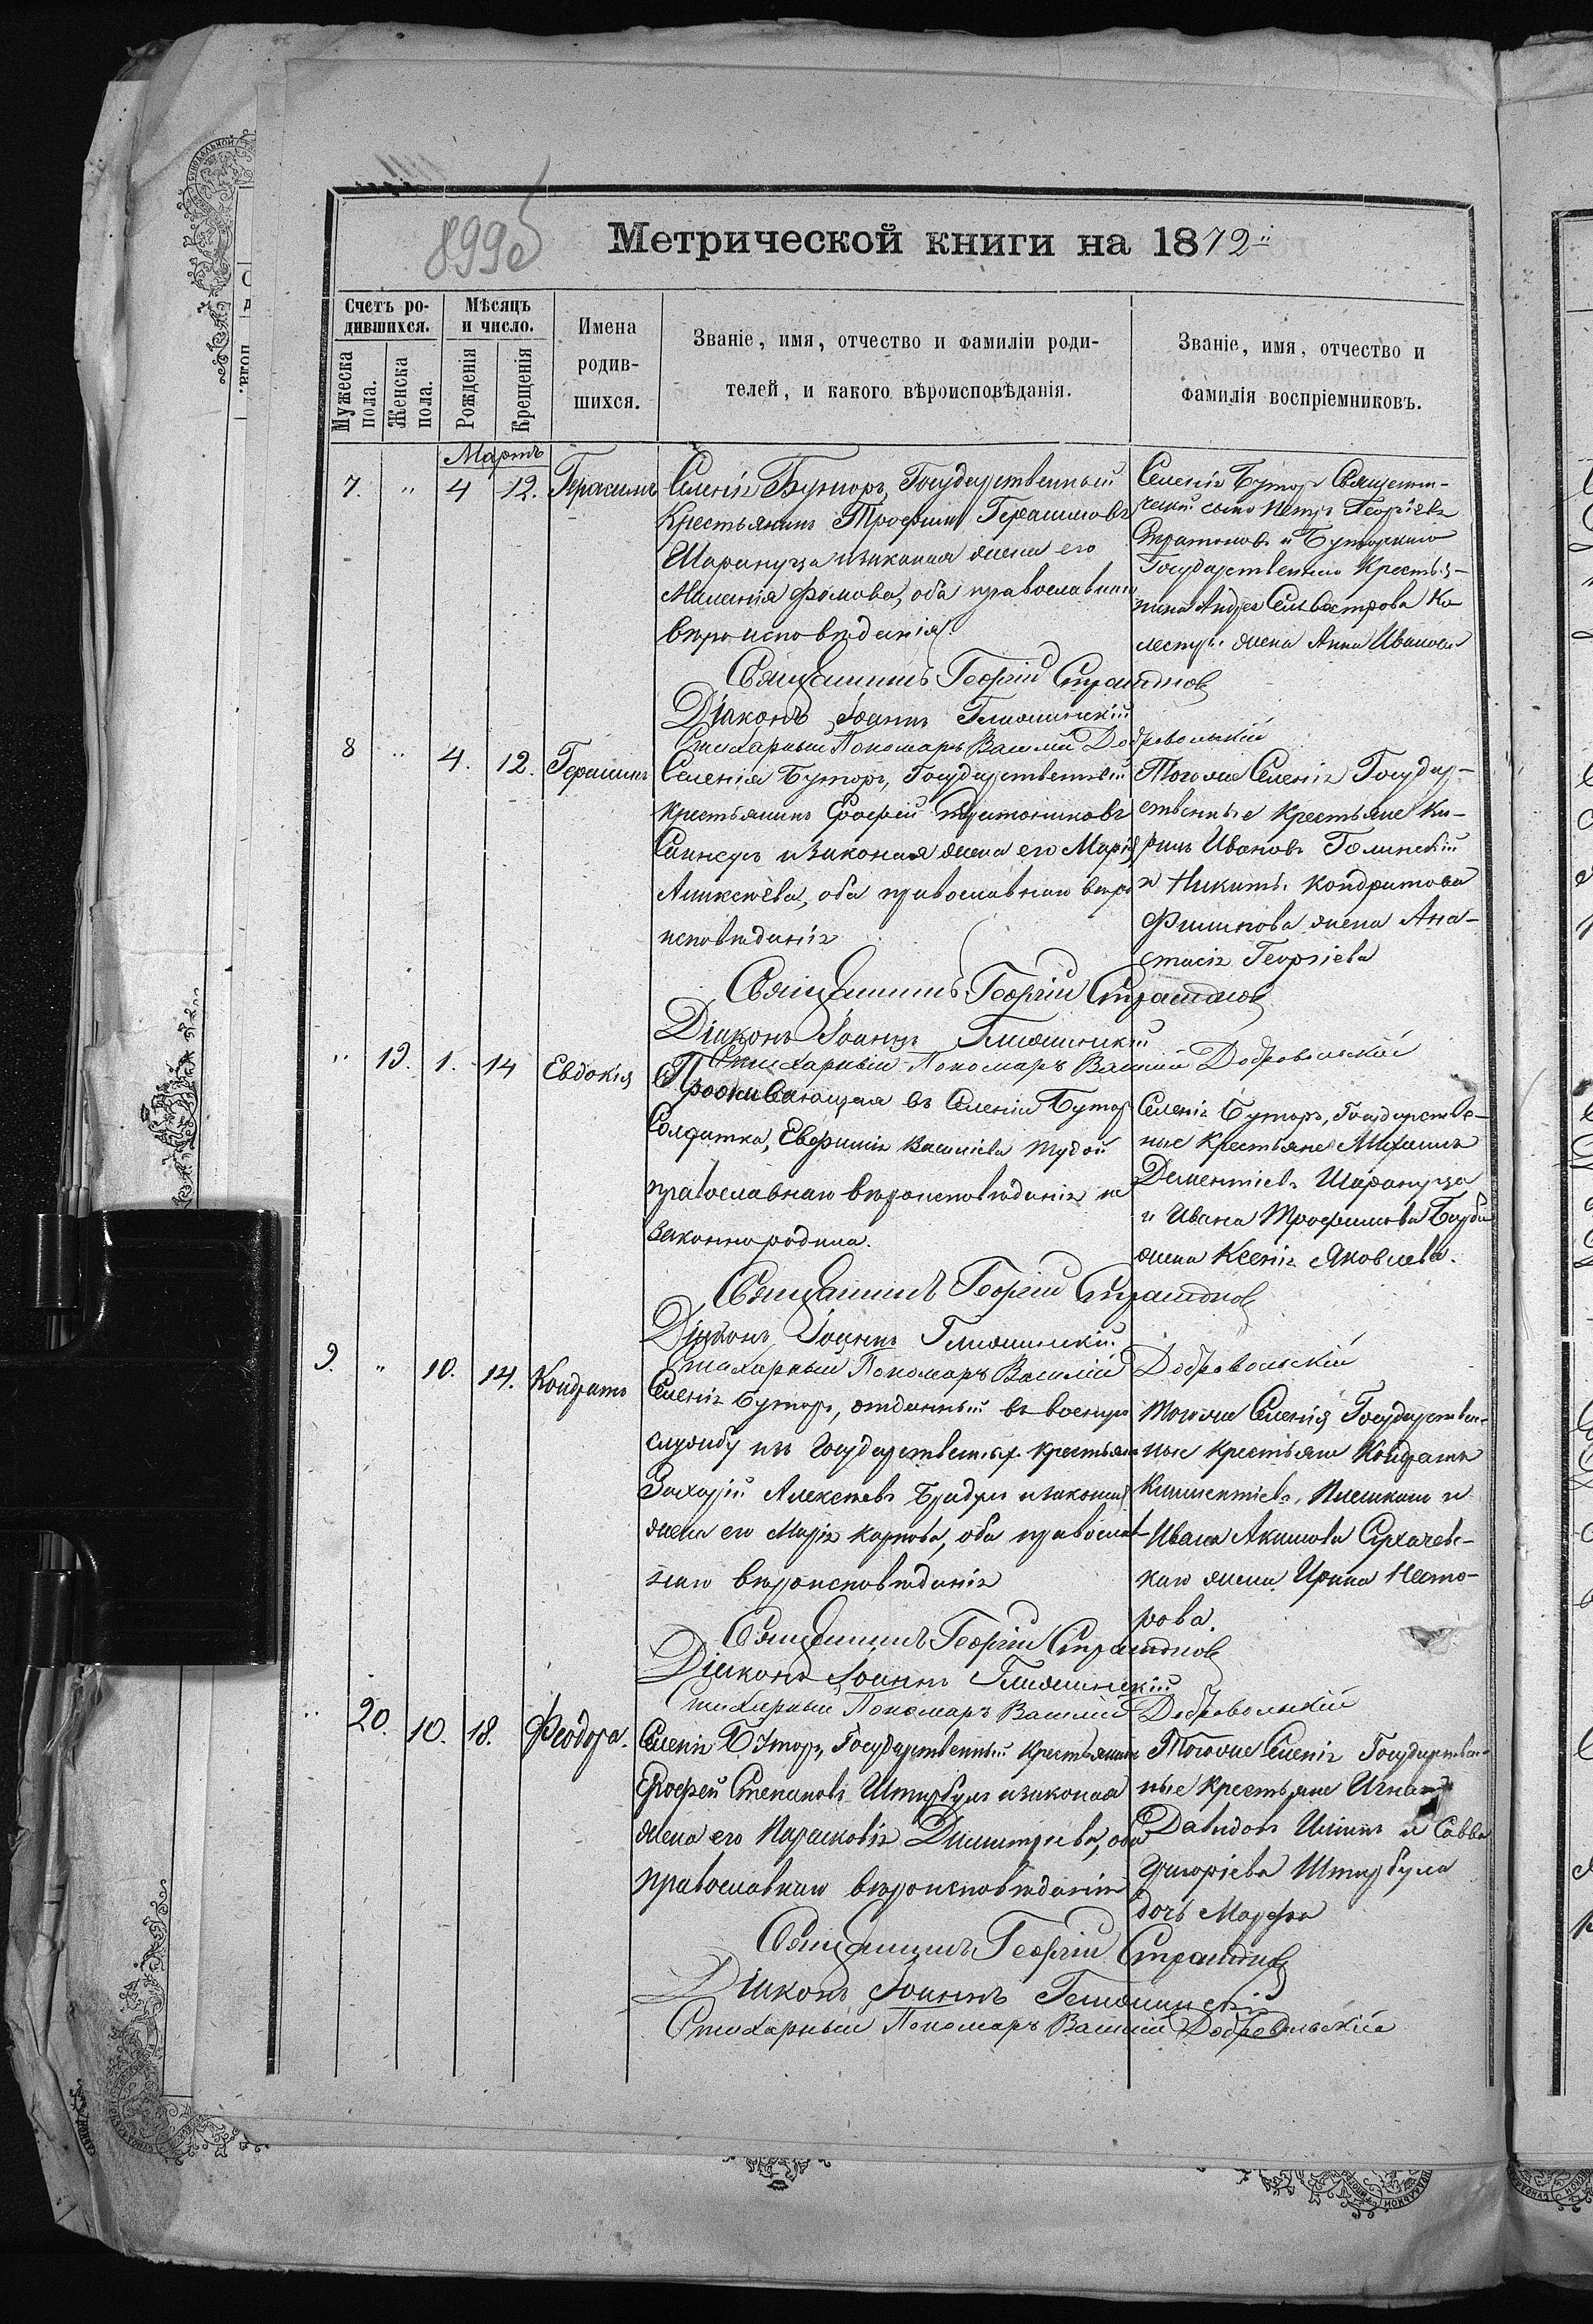 899об
Метрической книги на 1872й
Счетъ ро-
дившихся.
Мѣсяцъ
и число.
Имена
родив-
шихся.
Званіе, имя, отчество и фамиліи роди-
телей, и какого вѣроисповѣданія.
Званіе, имя, отчество и
фамилія воспріемниковъ.
Мужеска
пола.
Женска
пола.
Рожденія
Крещенія
Мартъ
7. " 4 12. Герасимъ
Селенія Буторъ, Государственный
Крестьянинъ Трофимъ Герасимовъ
Шарануца и законная жена его
Фомова, оба православнаго
вѣроисповѣданія.
Селенія Буторъ Священни-
ческій сынъ Петръ Георгіевъ
Стратоновъ и Буторскаго
Государственнаго Крестья-
нина Андрея Сильвестрова Ко-
жена Анна Иванова
Священникъ Георгій Стратоновъ
Діаконъ Іоаннъ Глижинскій
Стихарный Пономарь Василій Добровольскій
8 " 4. 12. Герасимъ
Селенія Буторъ, Государственный
крестьянинъ
и законная жена его Марія
Алексѣева, оба православнаго вѣро
исповѣданія
Тогоже Селенія Государ-
ственные крестьяне Ки-
рилъ Ивановъ
и Никиты Кондратова
Филипова жена Ана-
стасія Георгіева
Священникъ Георгій Стратоновъ
Діаконъ Іоаннъ Глижинскій
Стихарный Пономарь Василій Добровольскій
" 19. 1. 14 Евдокія
Проживающая въ Селеніи Буторъ
Солдатка, Евфимія Василіева Тудой
православнаго вѣроисповѣданія не
законнородила.
Селенія Буторъ, Государстве-
ные Крестьяне Михаилъ
Дементіевъ Шарануца
и Ивана Трофимова
жена Ксенія Яковлева.
Священникъ Георгій Стратоновъ
Діаконъ Іоаннъ Глижинскій
Стихарный Пономарь Василій Добровольскій
9. " 10. 14. Кондратъ
Селенія Буторъ, отданный въ военную
службу изъ Государственныхъ крестьянъ
Захарій Алексѣевъ и законная
жена его Марія Карпова, оба православ-
наго вѣроисповѣданія
Тогоже Селенія Государствен-
ные крестьяне Кондратъ
и
Ивана Акимова
каго жена Ирина Несто-
рова.
Священникъ Георгій Стратоновъ
Діаконъ Іоаннъ Глижинскій
Стихарный Пономарь Василій Добровольскій
" 20. 10. 18. Феодора.
Селенія Буторъ, Государственный крестьянинъ
Степановъ Штирбулъ и законная
жена его Парасковія Димитріева, оба
православнаго вѣроисповѣданія
Тогоже Селенія Государствен-
ные крестьяне Игнатъ
Давидовъ и Савва
Григоріева Штирбула
дочь Марфа
Священникъ Георгій Стратоновъ
Діаконъ Іоаннъ Глижинскій
Стихарный Пономарь Василій Добровольскій